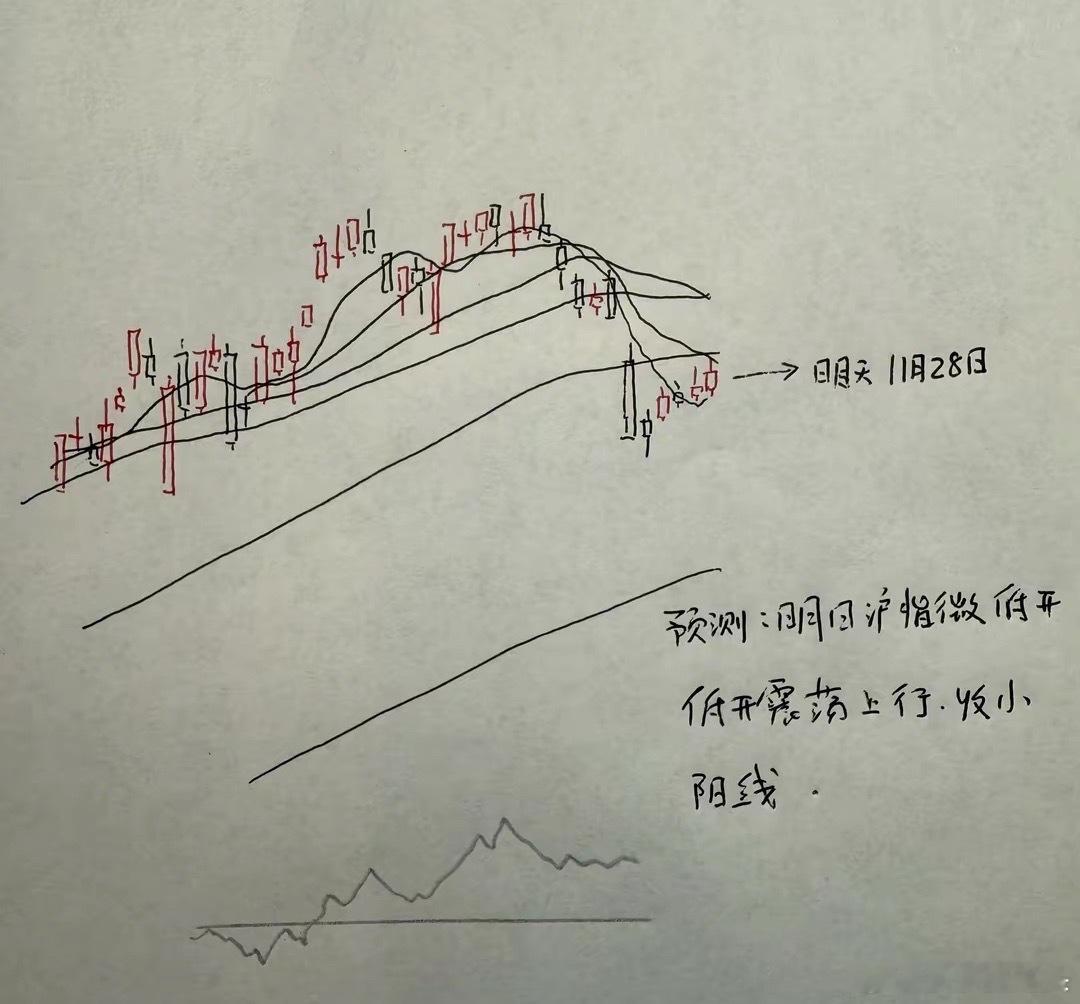 明天 11月28日
预测:明日沪指微低开
低开震荡上行.收小
阳线.